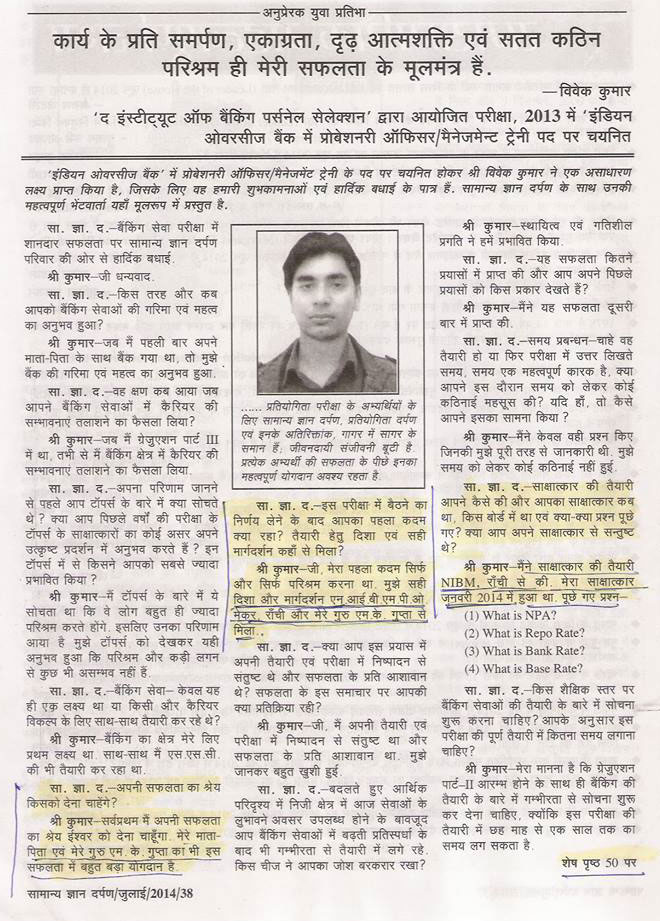 अनुप्रेरक युवा प्रतिभा
कार्य के प्रति समर्पण, एकाग्रता, दृढ़ आत्मशक्ति एवं सतत कठिन
परिश्रम ही मेरी सफलता के मूलमंत्र हैं.
—विवेक कुमार
'द इंस्टीट्यूट ऑफ बैंकिंग पर्सनेल सेलेक्शन' द्वारा आयोजित परीक्षा, 2013 में 'इंडियन
ओवरसीज बैंक में प्रोबेशनरी ऑफिसर/मैनेजमेन्ट ट्रेनी पद पर चयनित
'इंडियन ओवरसीज बैंक' में प्रोबेशनरी ऑफिसर/मैनेजमेंट ट्रेनी के पद पर चयनित होकर श्री विवेक कुमार ने एक असाधारण
लक्ष्य प्राप्त किया है, जिसके लिए वह हमारी शुभकामनाओं एवं हार्दिक बधाई के पात्र हैं. सामान्य ज्ञान दर्पण के साथ उनकी
महत्वपूर्ण भेंटवार्ता यहाँ मूलरूप में प्रस्तुत है.
सा. ज्ञा. द.–बैंकिंग सेवा परीक्षा में
शानदार सफलता पर सामान्य ज्ञान दर्पण
परिवार की ओर से हार्दिक बधाई.
श्री कुमार–जी धन्यवाद.
सा. ज्ञा. द.–किस तरह और कब
आपको बैंकिंग सेवाओं की गरिमा एवं महत्व
का अनुभव हुआ?
श्री कुमार–जब मैं पहली बार अपने
माता-पिता के साथ बैंक गया था, तो मुझे
बैंक की गरिमा एवं महत्व का अनुभव हुआ.
सा. ज्ञा. द.–वह क्षण कब आया जब
आपने बैंकिंग सेवाओं में कैरियर की
सम्भावनाएं तलाशने का फैसला लिया?
श्री कुमार–जब मैं ग्रेजुएशन पार्ट III
में था, तभी से मैं बैंकिंग क्षेत्र में कैरियर की
सम्भावनाएं तलाशने का फैसला लिया.
सा. ज्ञा. द.–अपना परिणाम जानने
से पहले आप टॉपर्स के बारे में क्या सोचते
थे? क्या आप पिछले वर्षों की परीक्षा के
टॉपर्स के साक्षात्कारों का कोई असर अपने
उत्कृष्ट प्रदर्शन में अनुभव करते हैं? इन
टॉपर्स में से किसने आपको सबसे ज्यादा
प्रभावित किया?
श्री कुमार–में टॉपर्स के बारे में ये
सोचता था कि वे लोग बहुत ही ज्यादा
परिश्रम करते होंगे. इसलिए उनका परिणाम
आया है मुझे टॉपर्स को देखकर यही
अनुभव हुआ कि परिश्रम और कड़ी लगन
से कुछ भी असम्भव नहीं है.
सा. ज्ञा. द.–बैंकिंग सेवा– केवल यह
ही एक लक्ष्य था या किसी और कैरियर
विकल्प के लिए साथ-साथ तैयारी कर रहे थे?
श्री कुमार–बैंकिंग का क्षेत्र मेरे लिए
प्रथम लक्ष्य था. साथ-साथ मैं एस.एस.सी.
की भी तैयारी कर रहा था.
सा. ज्ञा. द.–अपनी सफलता का श्रेय
किसको देना चाहेंगे?
श्री कुमार–सर्वप्रथम में अपनी सफलता
का श्रेय ईश्वर को देना चाहूँगा. मेरे माता-
पिता एवं मेरे गुरु एम. के. गुप्ता का भी इस
सफलता में बहुत बड़ा योगदान है.
...... प्रतियोगिता परीक्षा के अभ्यर्थियों के
लिए सामान्य ज्ञान दर्पण, प्रतियोगिता दर्पण
एवं इनके अतिरिक्तांक, गागर में सागर के
समान हैं, जीवनदायी संजीवनी बूटी है.
प्रत्येक अभ्यर्थी की सफलता के पीछे इनका
महत्वपूर्ण योगदान अवश्य रहता है.
सा. ज्ञा. द.–इस परीक्षा में बैठने का
निर्णय लेने के बाद आपका पहला कदम
क्या रहा? तैयारी हेतु दिशा एवं सही
मार्गदर्शन कहाँ से मिला?
श्री कुमार–जी, मेरा पहला कदम सिर्फ
और सिर्फ परिश्रम करना था. मुझे सही
दिशा और मार्गदर्शन एन.आई बी.एम.पी.ओ.
मेकर, राँची और मेरे गुरु एम.के. गुप्ता से
मिला.
सा. ज्ञा. द.–क्या आप इस प्रयास में
अपनी तैयारी एवं परीक्षा में निष्पादन से
संतुष्ट थे और सफलता के प्रति आशावान
थे? सफलता के इस समाचार पर आपकी
क्या प्रतिक्रिया रही?
श्री कुमार–जी, मैं अपनी तैयारी एवं
परीक्षा में निष्पादन से संतुष्ट था और
सफलता के प्रति आशावान था. मुझे
जानकर बहुत खुशी हुई.
सा. ज्ञा. द.–बदलते हुए आर्थिक
परिदृश्य में निजी क्षेत्र में आज सेवाओं के
लुभावने अवसर उपलब्ध होने के बावजूद
आप बैंकिंग सेवाओं में बढ़ती प्रतिस्पर्धा के
बाद भी गम्भीरता से तैयारी में लगे रहे.
किस चीज ने आपका जोश बरकरार रखा?
श्री कुमार–स्थायित्व एवं गतिशील
प्रगति ने हमें प्रभावित किया.
सा. ज्ञा. द.–यह सफलता कितने
प्रयासों में प्राप्त की और आप अपने पिछले
प्रयासों को किस प्रकार देखते हैं?
श्री कुमार–मैंने यह सफलता दूसरी
बार में प्राप्त की.
सा. ज्ञा. द.–समय प्रबन्धन–चाहे वह
तैयारी हो या फिर परीक्षा में उत्तर लिखते
समय, समय एक महत्वपूर्ण कारक है, क्या
आपने इस दौरान समय को लेकर कोई
कठिनाई महसूस की? यदि हाँ, तो कैसे
आपने इसका सामना किया?
श्री कुमार–मैंने केवल वही प्रश्न किए
जिनकी मुझे पूरी तरह से जानकारी थी. मुझे
समय को लेकर कोई कठिनाई नहीं हुई.
सा. ज्ञा. द.–साक्षात्कार की तैयारी
आपने कैसे की और आपका साक्षात्कार कब
था, किस बोर्ड में था एवं क्या-क्या प्रश्न पूछे
गए? क्या आप अपने साक्षात्कार से सन्तुष्ट
थे?
श्री कुमार–मैंने साक्षात्कार की तैयारी
NIBM, राँची से की. मेरा साक्षात्कार
जनवरी 2014 में हुआ था. पूछे गए प्रश्न–
(1) What is NPA?
(2) What is Repo Rate?
(3) What is Bank Rate?
(4) What is Base Rate?
सा. ज्ञा. द.–किस शैक्षिक स्तर पर
बैंकिंग सेवाओं की तैयारी के बारे में सोचना
शुरू करना चाहिए? आपके अनुसार इस
परीक्षा की पूर्ण तैयारी में कितना समय लगाना
चाहिए?
श्री कुमार–मेरा मानना है कि ग्रेजुएशन
पार्ट–II आरम्भ होने के साथ ही बैंकिंग की
तैयारी के बारे में गम्भीरता से सोचना शुरू
कर देना चाहिए, क्योंकि इस परीक्षा की
तैयारी में छह माह से एक साल तक का
समय लग सकता है.
शेष पृष्ठ 50 पर
सामान्य ज्ञान दर्पण/जुलाई/2014/38